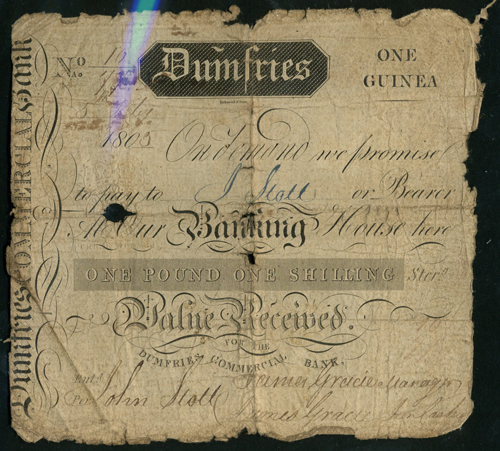 Dumfries COMMERCIAL Bank
No
Dumfries
ONE
GUINEA
1805
On demand we promise
to pay to J Scott or Bearer
At Our Banking House here
ONE POUND ONE SHILLING Sterg
Value Received.
FOR THE
DUMFRIES COMMERCIAL BANK,
James Gracie Manager
John Scott
James Gracie